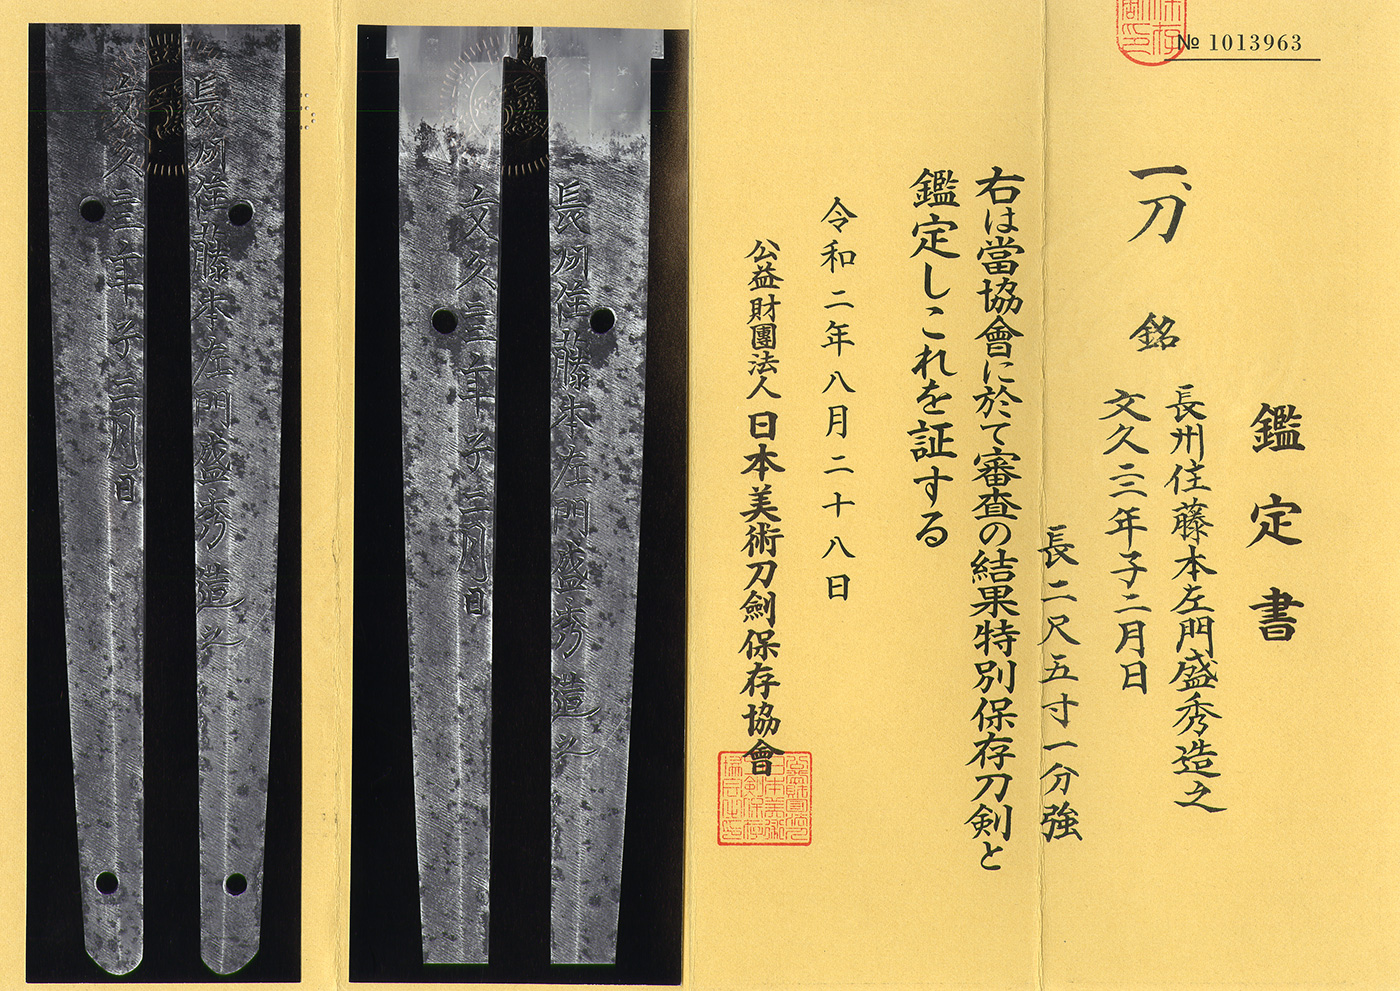 № 1013963
鑑定書
一、刀 銘 長州住藤本左門盛秀造之
文久二二年子二月日
長二尺五寸一分強
右は當協會に於て審査の結果特別保存刀剣と
鑑定しこれを証する
令和二年八月二十八日
公益財團法人日本美術刀劍保存協會
長州住藤本左門盛秀造之
文久二二年子二月日
長州住藤本左門盛秀造之
文久二二年子二月日